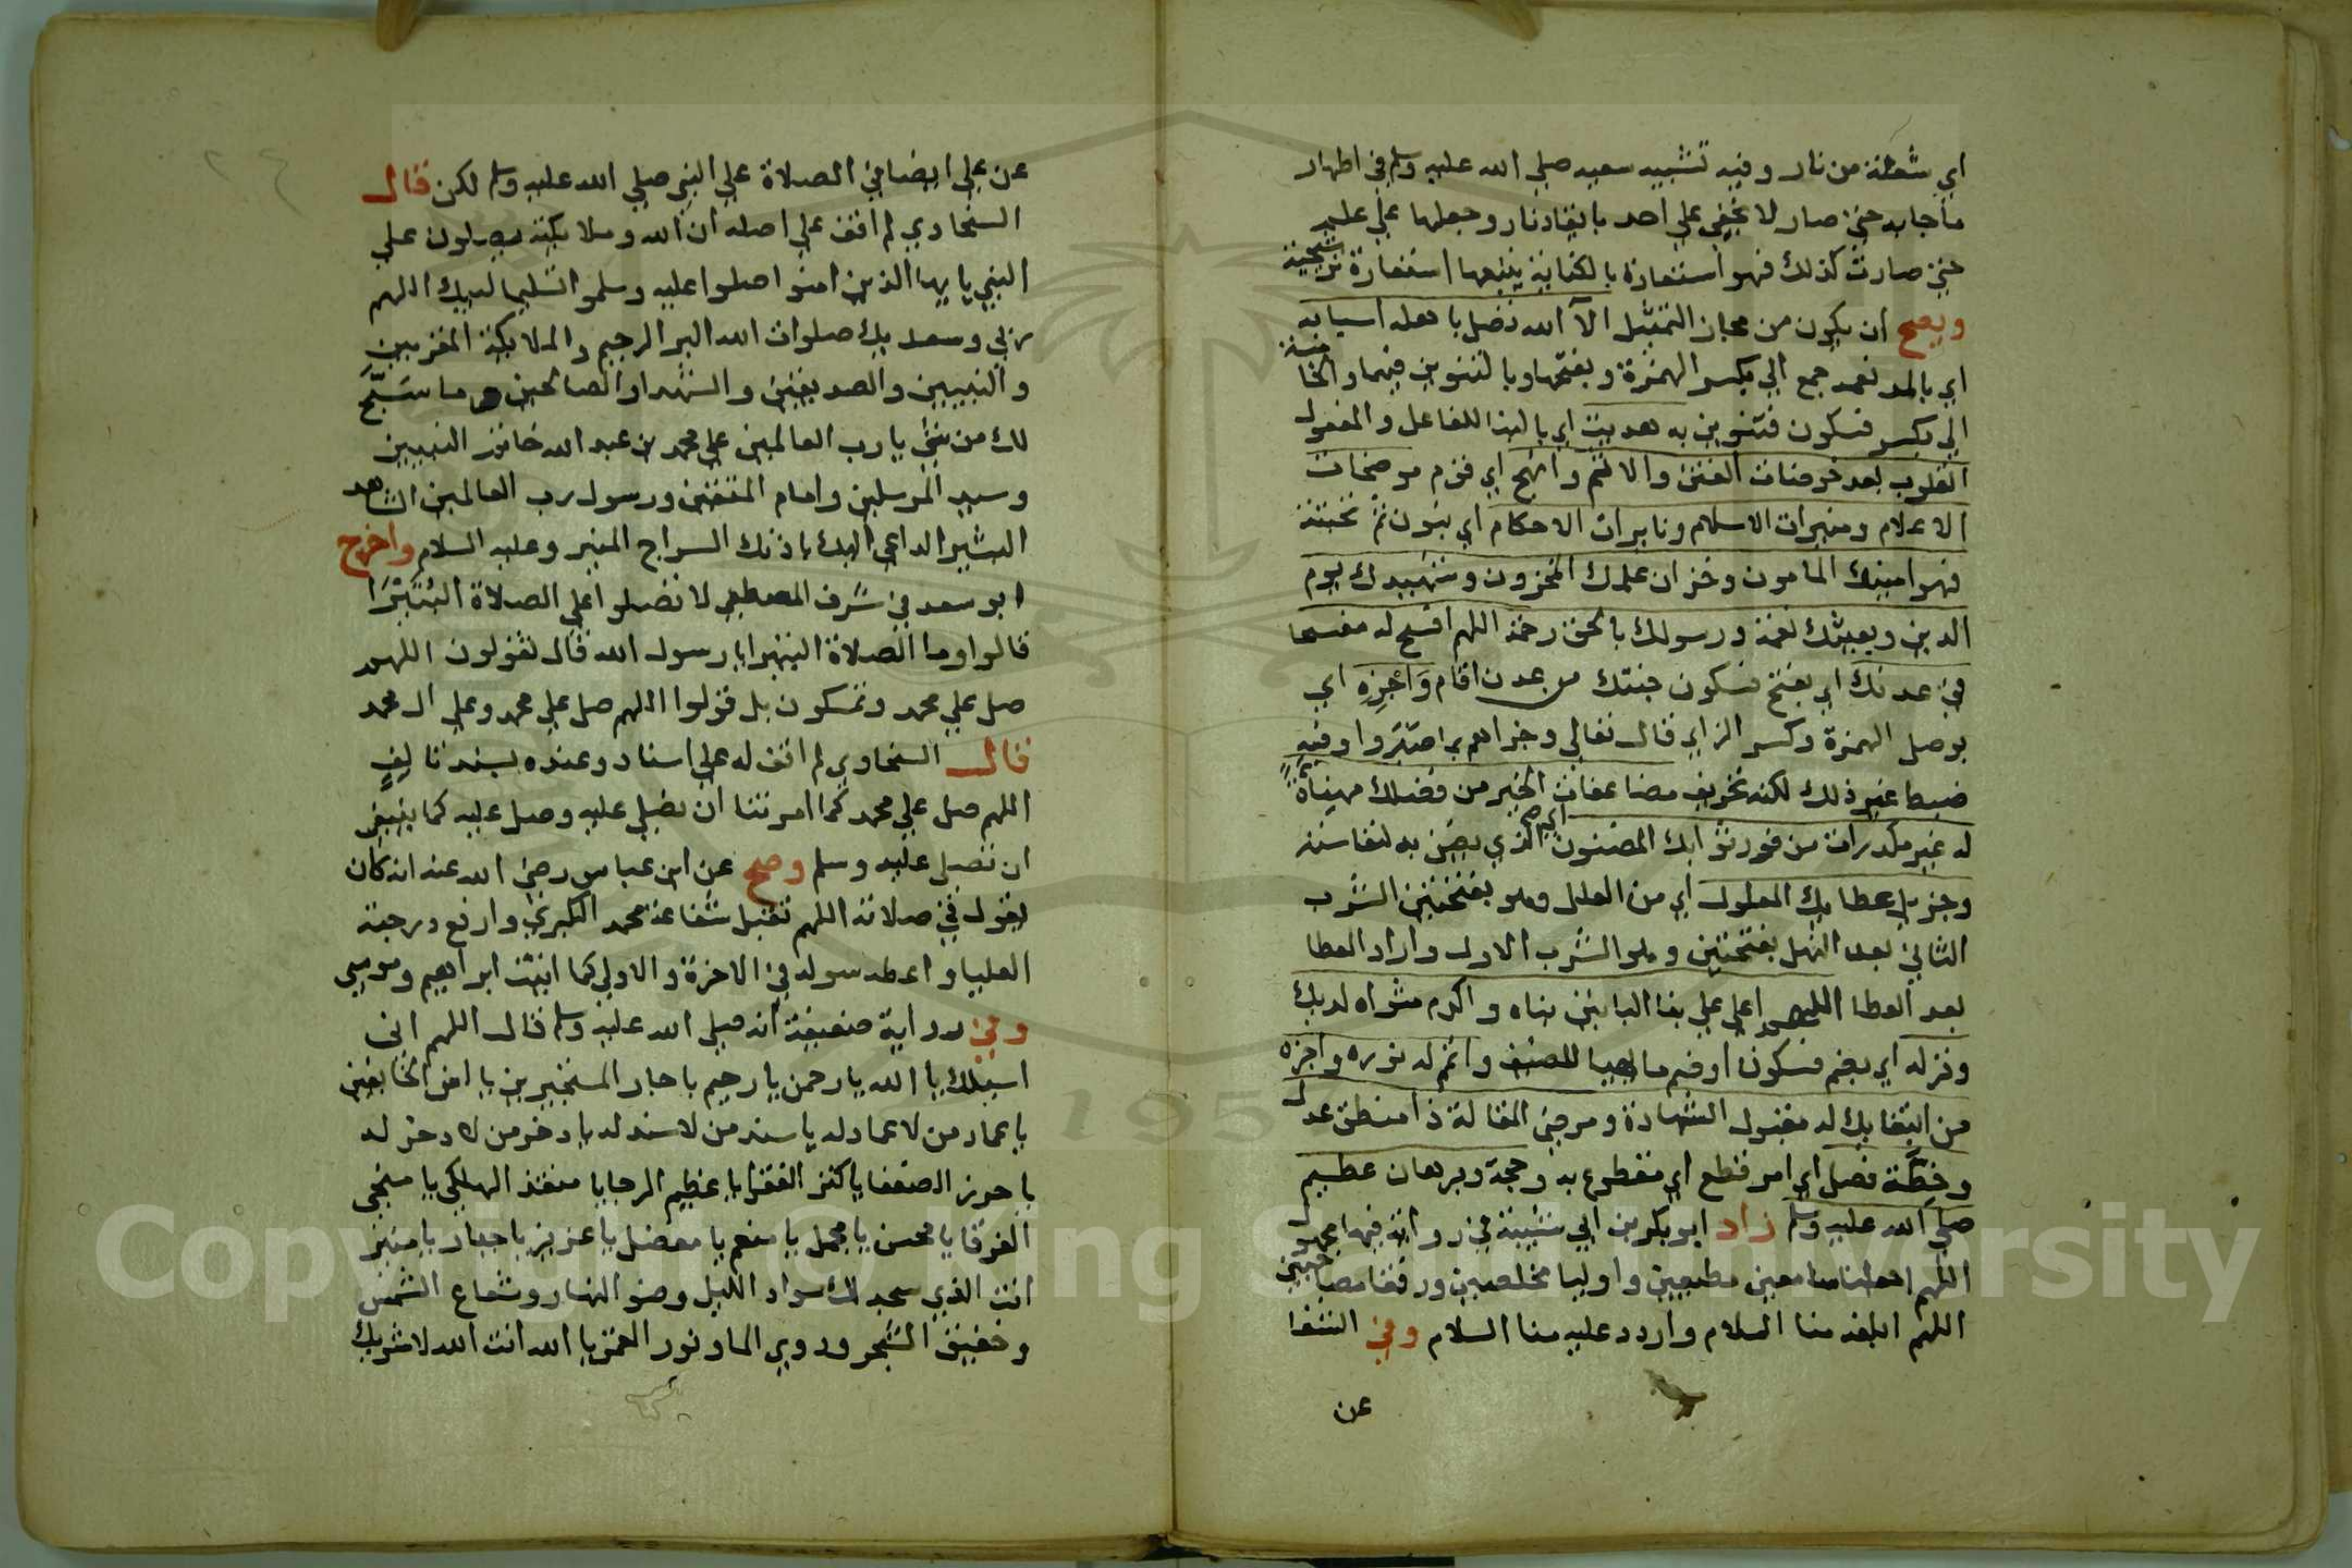 اي شعلة من نار وفيه تشبيه سعيه صلي الله عليه وسلم في اظهار
ما جا به حتي صار لا يخفي علي احد بايقاد نار وجعلها علي علم
حتي صارت كذلك فهو استعارة بالكناية يتبعها استعارة ترشيحية
ويصح ان يكون من مجاز التمثيل الآ الله تصل باهله اسبابه
اي بالمد نعمه جمع الي بكسر الهمزة وبفتحها وبالتنوين فيهما
الي بكسر فسكون فتنوين به هديت اي بالبنا للفاعل والمفعول
القلوب بعد خوضات الفتن والاثم وانهج اي قوم موضحات
الاعلام ومنيرات الاسلام ونايرات الاحكام اي بنون ثم تحتية
فهو امينك المامون وخزان علمك المخزون وشهيدك يوم
الدين وبعيثك نعمة ورسولك بالحق رحمة اللهم افسح له مفسحا
في عدنك اي بفتح فسكون جنتك من عدن اقام وَاَجزِهِ اي
بوصل الهمزة وكسر الزاي قال تعالي وجزاهم بما صبروا وفيه
ضبط غير ذلك لكنه تحريف مضاعفات الخير من فضلك مهنيات
له غير مكدرات من فوز ثوابك المضنون اي الذي يضن به لنفاسته
وجزيل عطايك المعلول اي من العلل وهو بفتحتين الشرب
الثاني بعد النهل بفتحتين وهو الشرب الاول واراد العطا
بعد العطا اللهم اعلي علي بنا البانين بناه واكرم مثواه لديك
ونزله اي بضم فسكون او ضم ما يهيا للضيف واتمم له نوره واجزه
من ابتعاثك له مقبول الشهادة ومرضي المقالة ذا منطق عدل
وخِطَّة فصل اي امر قطع اي مقطوع به وحجة وبرهان عظيم
صلي الله عليه وسلم زاد ابو بكر بن ابي شيبة في رواية فيها مجهول
اللهم اجعلنا سامعين مطيعين واوليا مخلصين ورفقا مصاحبين
اللهم ابلغه منا السلام واردد عليه منا السلام وفي الشفا
عن
عن علي ايضا في الصلاة علي النبي صلي الله عليه وسلم لكن قال
السخاوي لم اقف علي اصله ان الله وملايكته يصلون علي
النبي يايها الذين امنوا صلوا عليه وسلموا تسليما لبيك اللهم
ربي وسعديك صلوات الله البر الرحيم والملايكة المقربين
والنبيين والصديقين والشهدا والصالحين وما سَبَّحَ
لك من شئ يا رب العالمين علي محمد بن عبد الله خاتم النبيين
وسيد المرسلين وامام المتقين ورسول رب العالمين الشاهد
البشير الداعي اليك باذنك السراج المنير وعليه السلام واخرج
ابو سعد في شرف المصطفي لا تصلوا علي الصلاة البُتَيْرَا
قالوا وما الصلاة البتيرا يا رسول الله قال تقولون اللهم
صل علي محمد وتمسكون بل قولوا اللهم صل علي محمد وعلي ال محمد
قال السخاوي لم اقف له علي اسناد وعنده بسند تالفٍ
اللهم صل علي محمد كما امرتنا ان نصلي عليه وصل عليه كما ينبغي
ان نصلي عليه وسلم وصح عن ابن عباس رضي الله عنه انه كان
يقول في صلاته اللهم تقبل شفاعة محمد الكبري وارفع درجته
العليا واعطه سوله في الاخرة والاولي كما اتيت ابراهيم وموسي
وفي رواية ضعيفة انه صلي الله عليه وسلم قال اللهم اني
اسيلك يا الله يا رحمن يا رحيم يا جار المستجيرين يا امن الخايفين
يا عماد من لا عماد له يا سند من لا سند له يا ذخر من لا ذخر له
يا حرز الضعفا يا كنز الفقرا يا عظيم الرجا يا منقذ الهلكي يا منجي
الغرقا يا محسن يا مجمل يا منعم يا مفضل يا عزيز يا جبار يا منير
انت الذي سجد لك سواد الليل وضو النهار وشعاع الشمس
وحفيف الشجر ودوي الما ونور القمر يا الله انت الله لا شريك
Copyright © King Saud University